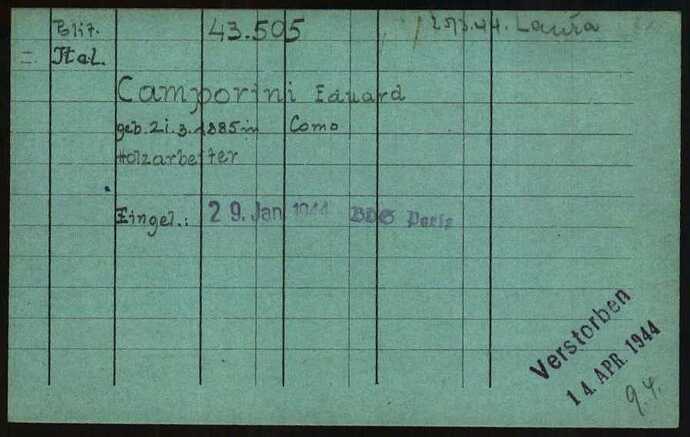 Polit. 43.505 Laura
Ital.
Camporini Eduard
geb. 21.3.1885 in Como
Holzarbeiter
Eingel.: 29. Jan 1944 BDS Paris
Verstorben
14. APR. 1944
9.4.